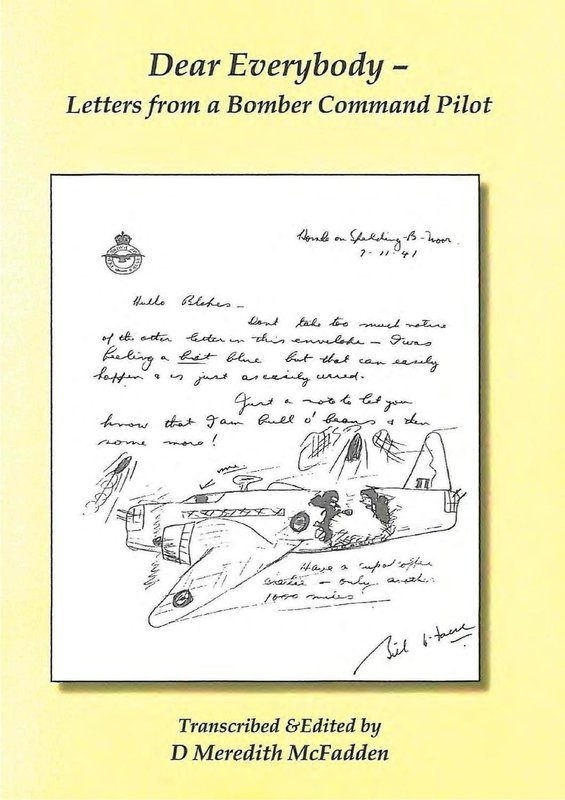 Dear Everybody –
Letters from a Bomber Command Pilot
Holme on Spalding-B-Moor.
7-11-41
Hullo Blokes –
Dont take too much notice
of the other letter in this envelope – I was
feeling a bit blue but that can easily
happen & is just as easily cured.
Just a note to let you
know that I am full o' beans & then
some more!
me
Have a cup o' coffee
only another
1000 miles
Bill
Transcribed &Edited by
D Meredith McFadden